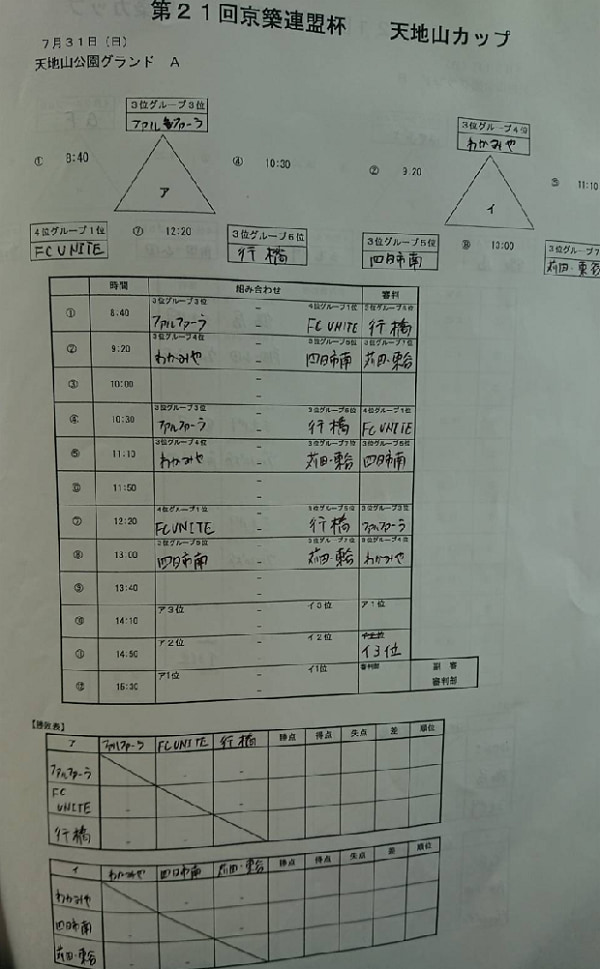 第21回京築連盟杯　天地山カップ
7月31日（日）
天地山公園グランド　A
3位グループ3位
ファルファーラ
3位グループ4位
わかみや
① 8:40
④ 10:30
② 9:20
11:10
ア
イ
4位グループ1位
FC UNITE
⑦ 12:20
3位グループ6位
行橋
3位グループ5位
四日市南
⑧ 13:00
3位グループ7
苅田・
時間 組み合わせ 審判
3位グループ3位 4位グループ1位
① 8:40 ファルファーラ - FC UNITE 行橋
3位グループ4位 3位グループ5位 3位グループ7位
② 9:20 わかみや - 四日市南 苅田・
③ 10:00 -
3位グループ3位 3位グループ6位 4位グループ1位
④ 10:30 ファルファーラ - 行橋 FC UNITE
3位グループ4位 3位グループ7位 3位グループ5位
⑤ 11:10 わかみや - 苅田・ 四日市南
11:50 -
4位グループ1位 3位グループ6位 3位グループ3位
⑦ 12:20 FC UNITE - 行橋 ファルファーラ
3位グループ5位 3位グループ7位 3位グループ4位
⑧ 13:00 四日市南 - 苅田・ わかみや
⑨ 13:40 -
14:10 ア3位 - イ3位 ア1位
14:50 ア2位 - イ2位 イ3位
⑫ 15:30 ア1位 - イ1位 審判部 副審 審判部
【勝敗表】
ア ファルファーラ FC UNITE 行橋 勝点 得点 失点 差 順位
ファルファーラ - -
FC UNITE - -
行橋 - -
イ わかみや 四日市南 苅田・ 勝点 得点 失点 差 順位
わかみや - -
四日市南 - -
苅田・ - -